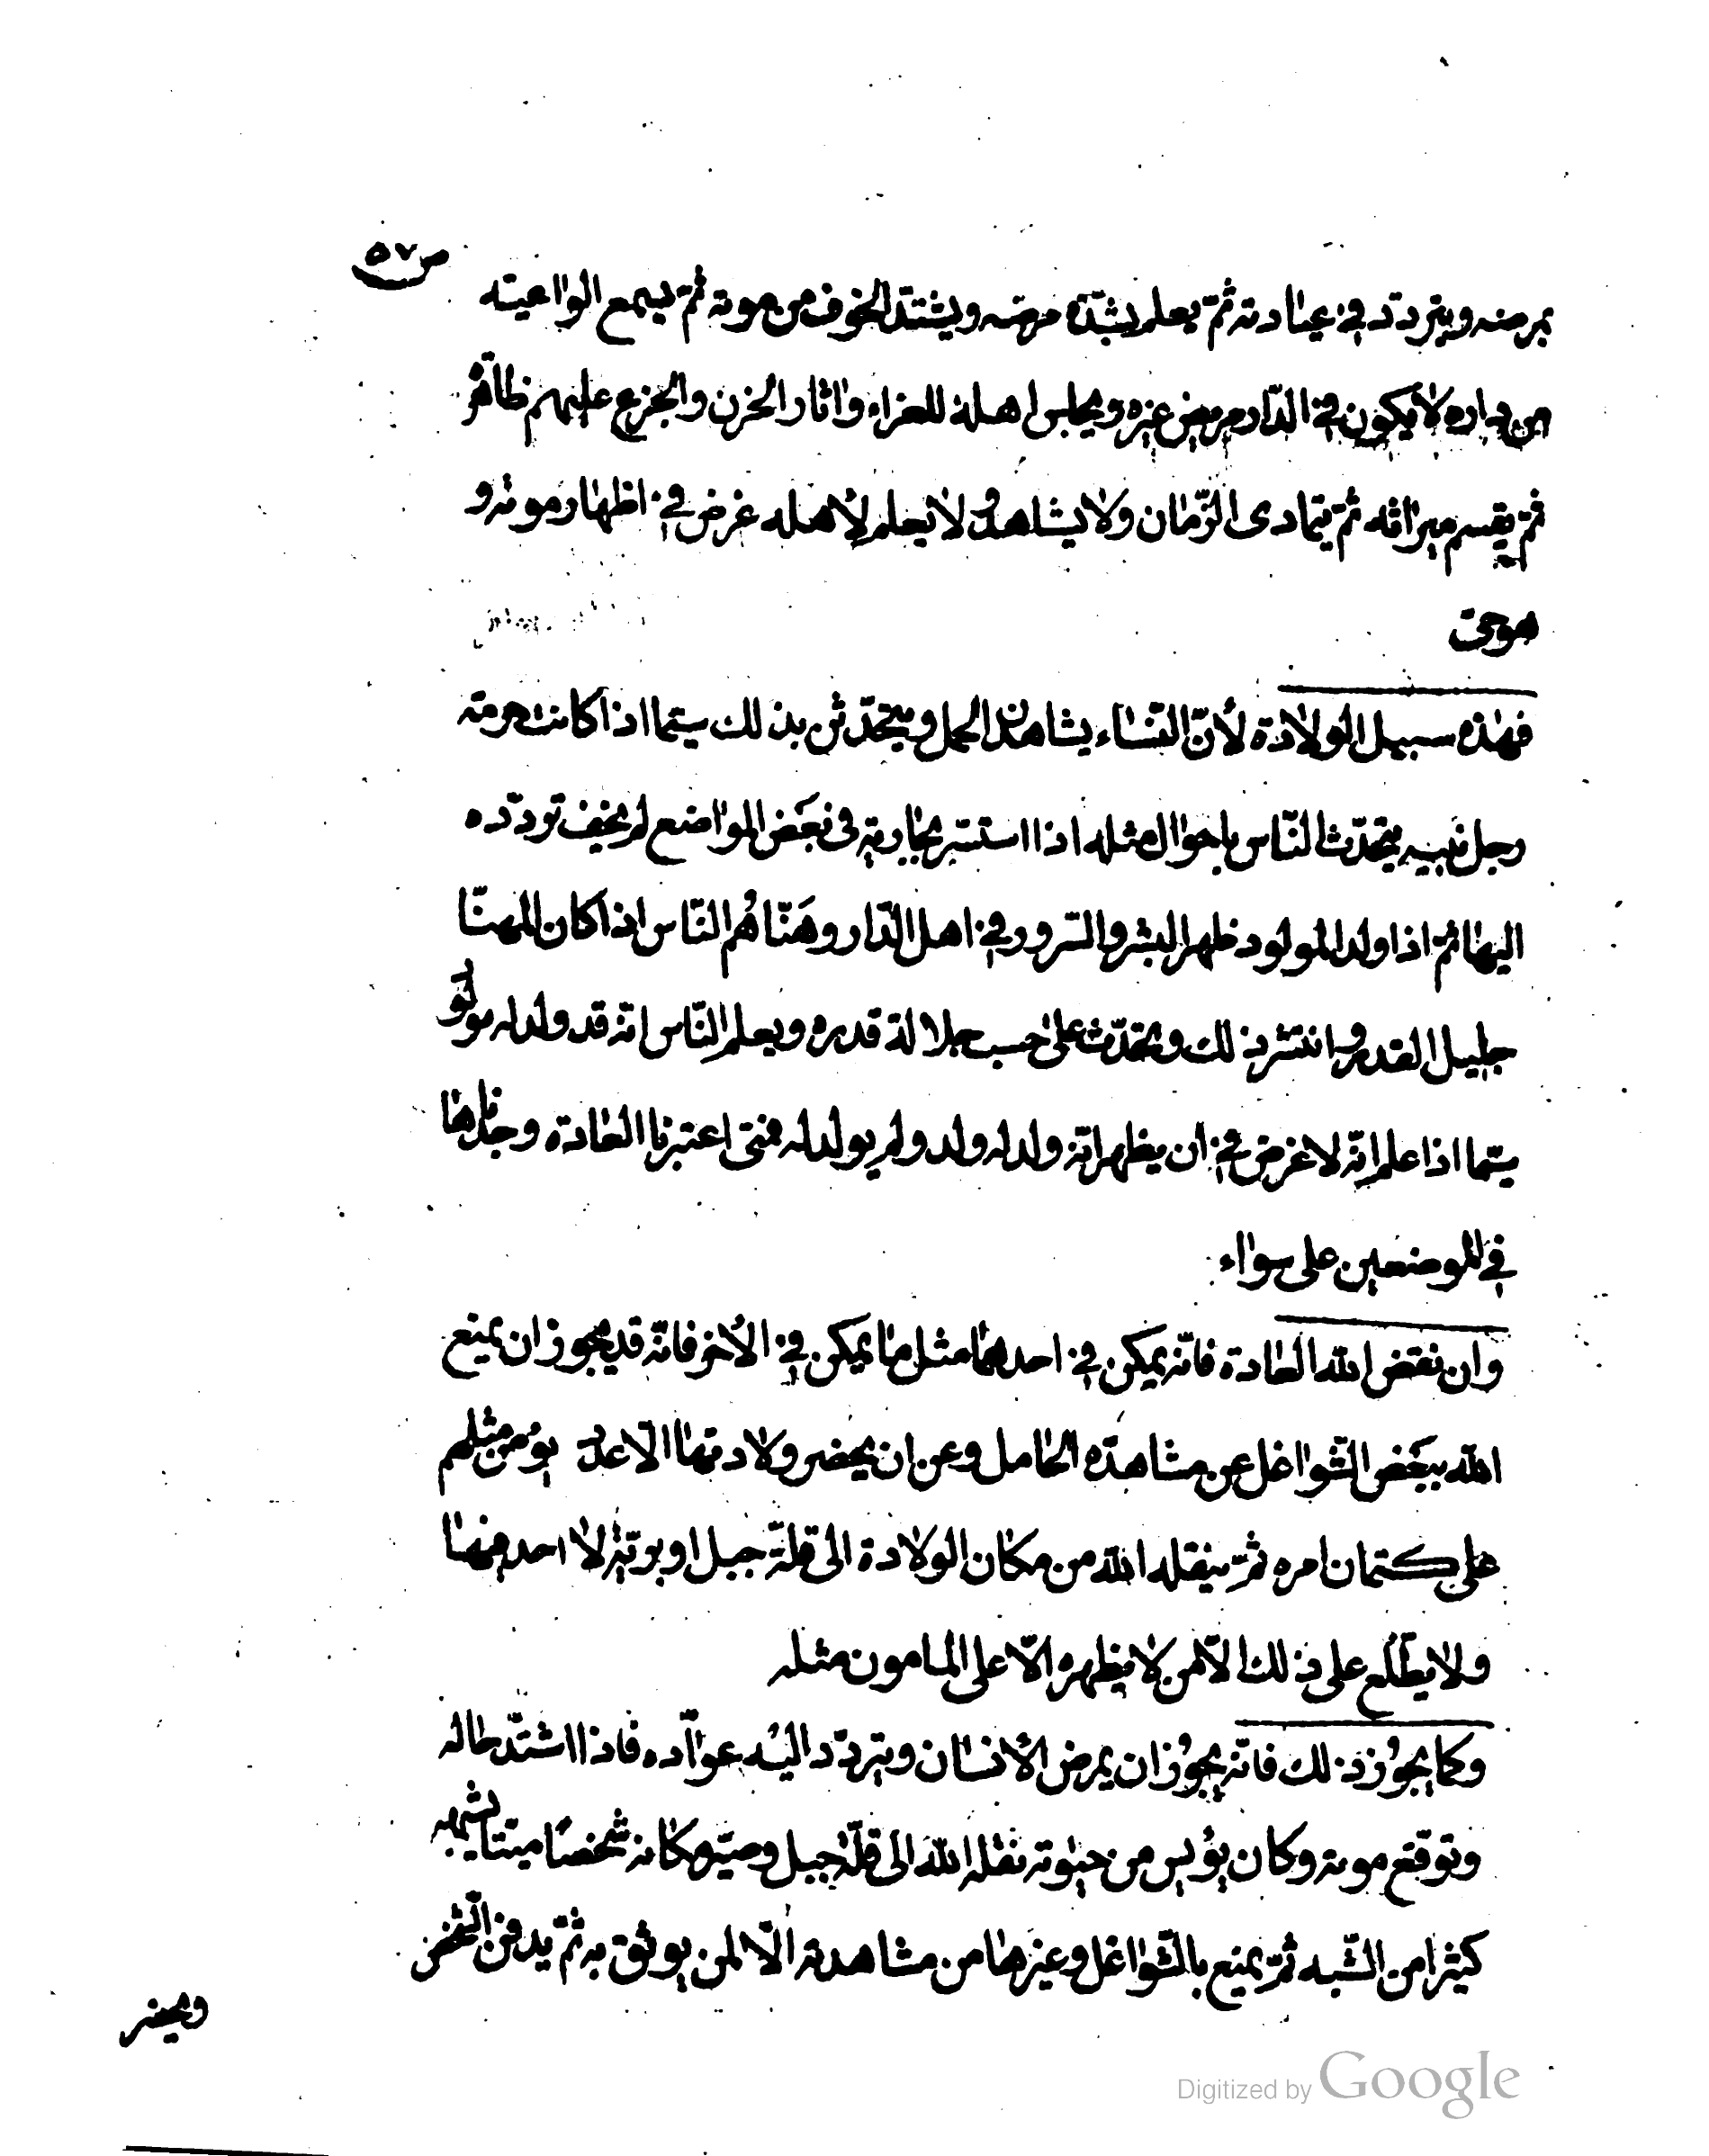 ص ٥٧
بمرضه ويتردد في عيادته ثمّ يعلم بشدّة مرضه ويشتدّ الخوف من موته ثمّ يسمع الواعية
من داره لا يكون في الدّار مريض غيره ويجلس اهله للعزاء واثار الحزن والجزع عليهم ظاهرة
ثمّ يقسم ميراثه ثمّ يتمادى الزّمان ولا يشاهد ولا يعلم لأهله غرض في اظهار موته و
هو حيّ
فهذه سبيل الولادة لأنّ النّساء يشاهدن الحمل ويتحدّثن بذلك سيّما اذا كانت حرمة
رجل نبيه يتحدّث النّاس باحوال مثله اذا استتر بجارية فى بعَض المواضع لم يخف تردّده
اليها ثمّ اذا ولد المولود ظهر البشر والسّرور في اهل الدّار وهَنّاهُم النّاس اذا كان المهنّا
جليل القدر وانتشر ذلك وتحّدّث على حسب جلالة قدره ويعلم النّاس انّه قد ولد له مولو
سيّما اذا علم انّه لا غرض في ان يظهر انّه ولد له ولد ولم يولد له فمتى اعتبرنا العادة وجدناها
في الموضعين على سواء
وان نقض الله العادة فانّه يمكن في احدهما مثل ما يمكن في الأخر فانّه قد يجوز ان يمنع
الله ببَعَض الشّواغل عن مشاهدة الحامل وعن ان يحضر ولادتها الّا عدد يؤمن مثلهم
على كتمان امره ثمّ ينقله الله من مكان الولادة الى قلّة جبل او بريّة لا احد فيها
ولا يطّلع على ذلك الّا من لا يظهره الّا على المامون مثله
وكما يجوُز ذلك فانّه يجوُز ان يمرض الأنسان ويتردّد اليْه عوّاده فاذا اشتدّ حاله
وتوقّع موته وكان يؤيس من حيوته نقله الله الى قلّة جبل وصيّر مكانه شخصًا ميّتا يشبهه
كثيرا من الشّبه ثمّ يمنع بالشّواغل وغيرها من مشاهدته الّا لمن يوثق به ثمّ يدفن الشّخص
ويحضر
Digitized by Google